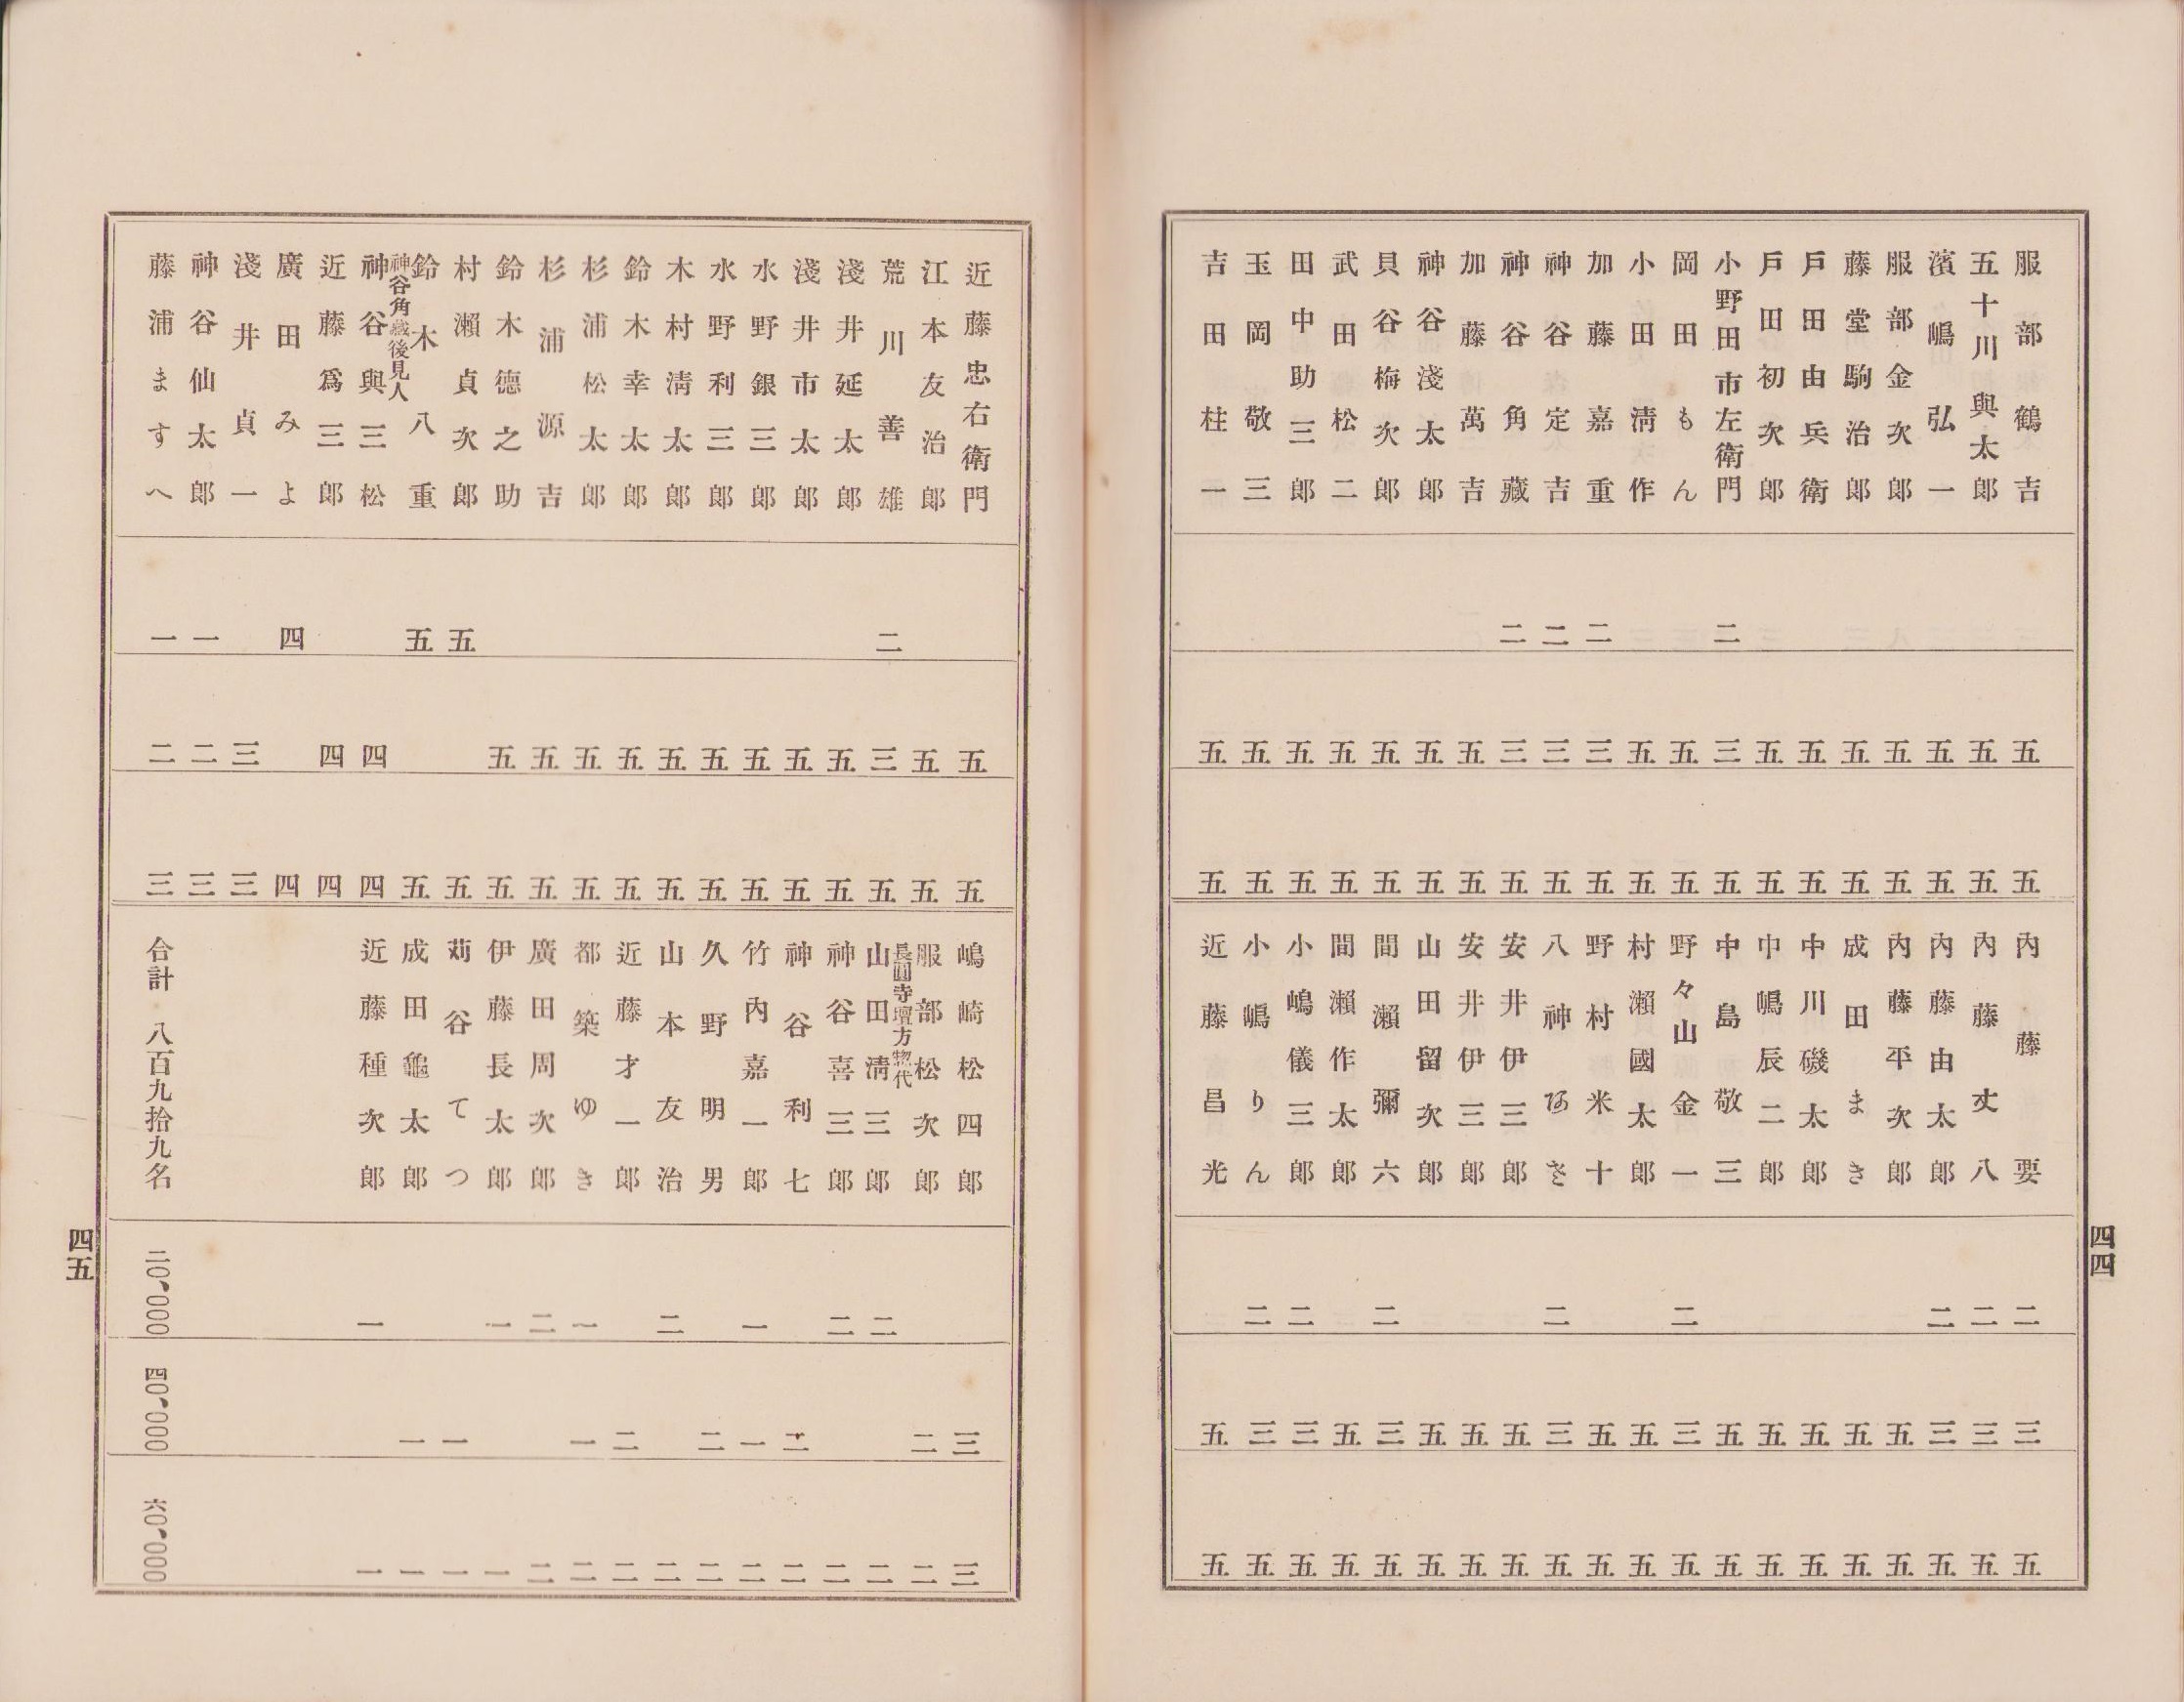 服部鶴吉 五 五
五十川與太郎 五 五
濱嶋弘一 五 五
服部金次郎 五 五
藤堂駒治郎 五 五
戸田由兵衛 五 五
戸田初次郎 五 五
小野田市左衛門 二 三 五
岡田もん 五 五
小田淸作 五 五
加藤嘉重 二 三 五
神谷定吉 二 三 五
神谷角藏 二 三 五
加藤萬吉 五 五
神谷淺太郎 五 五
貝谷梅次郎 五 五
武田松二 五 五
田中助三郎 五 五
玉岡敬三 五 五
吉田柱一 五 五
内藤要 二 三 五
内藤丈八 二 三 五
内藤由太郎 二 三 五
内藤平次郎 五 五
成田まき 五 五
中川磯太郎 五 五
中嶋辰二郎 五 五
中島敬三 五 五
野々山金一 二 三 五
村瀨國太郎 五 五
野村米十 五 五
八神あさ 二 三 五
安井伊三郎 五 五
安井伊三郎 五 五
山田留次郎 五 五
間瀨彌六 二 三 五
間瀨作太郎 五 五
小嶋儀三郎 二 三 五
小嶋りん 二 三 五
近藤昌光 五 五
四四
近藤忠右衛門 五 五
江本友治郎 五 五
荒川善雄 二 三 五
淺井延太郎 五 五
淺井市太郎 五 五
水野銀三郎 五 五
水野利三郎 五 五
木村淸太郎 五 五
鈴木幸太郎 五 五
杉浦松太郎 五 五
杉浦源吉 五 五
鈴木德之助 五 五
村瀨貞次郎 五 五
鈴木八重 五 五
神谷角藏後見人
神谷與三松 四 四
近藤爲三郎 四 四
廣田みよ 四 四
淺井貞一 三 三
神谷仙太郎 一 二 三
藤浦ますへ 一 二 三
嶋崎松四郎 三 三
服部松次郎 二 二
長圓寺壇方惣代
山田淸三郎 二 二
神谷喜三郎 二 二
神谷利七 二 二
竹内嘉一郎 一 一 二
久野明男 二 二
山本友治 二 二
近藤才一郎 二 二
都築ゆき 一 一 二
廣田周次郎 二 二
伊藤長太郎 一 一
苅谷てつ 一 一
成田龜太郎 一 一
近藤種次郎 一 一
合計 八百九拾九名 二〇、〇〇〇 四〇、〇〇〇 六〇、〇〇〇
四五